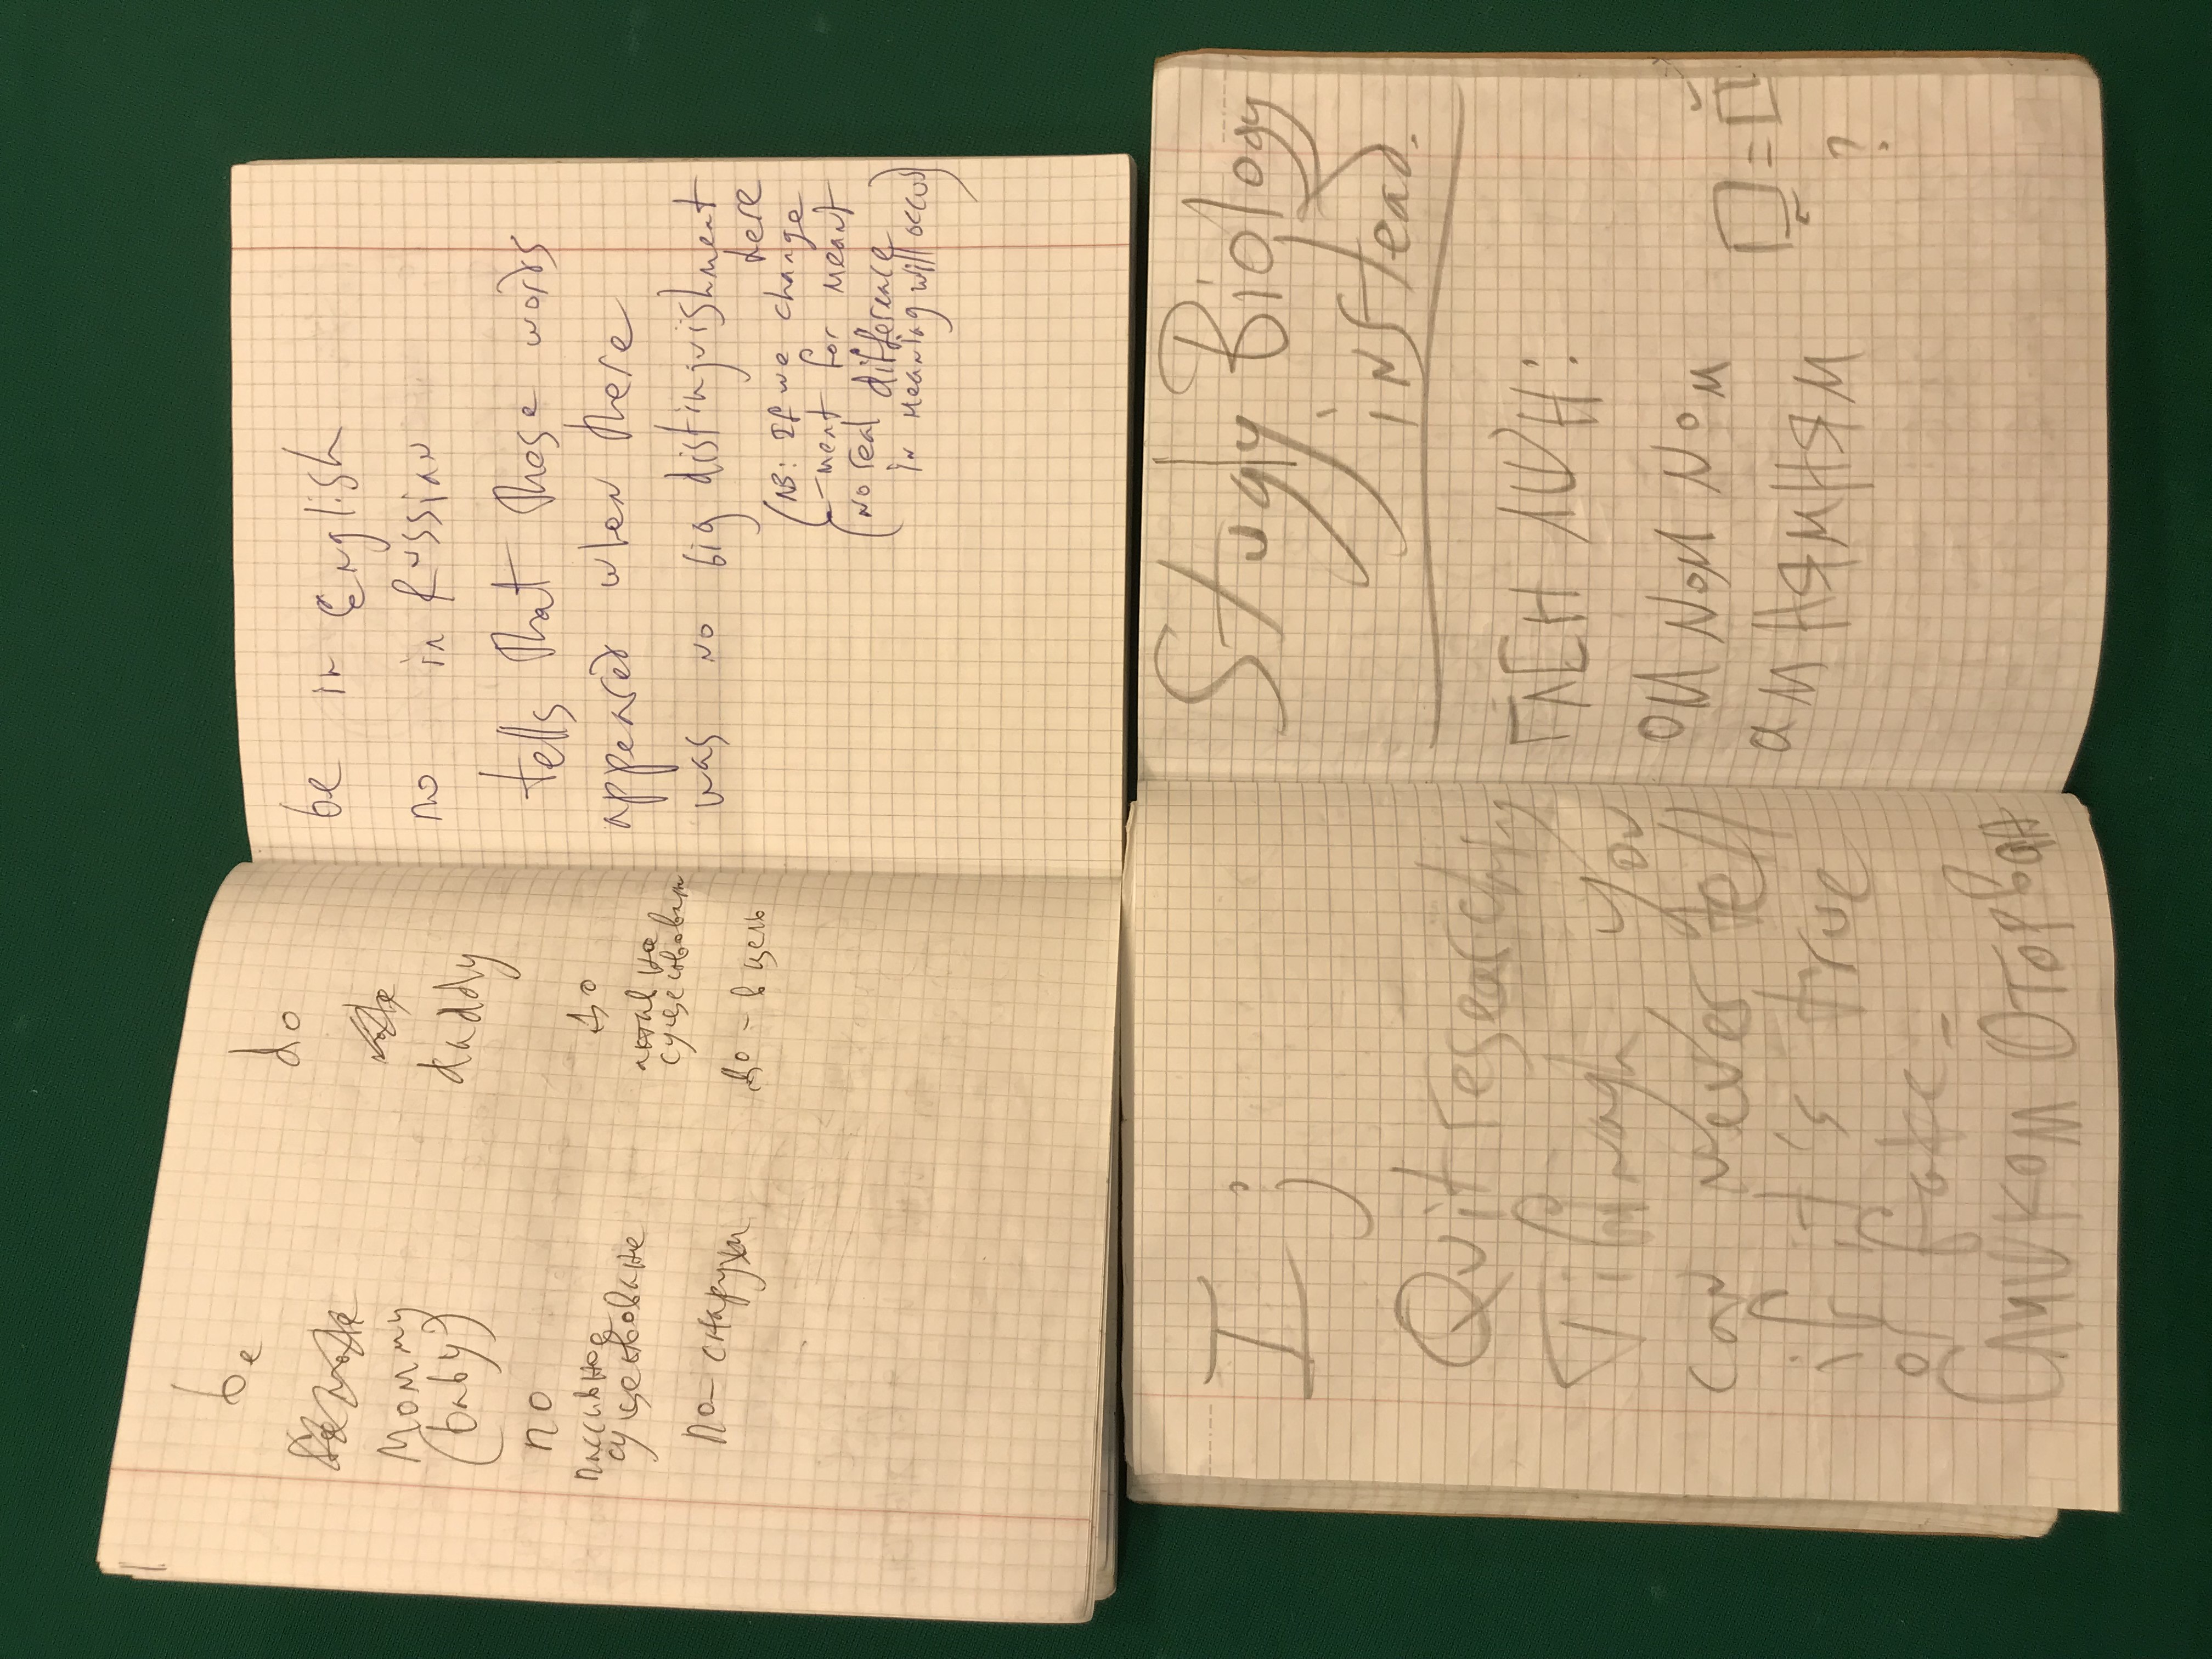 be
do
Mommy
daddy
(baby)
по
до
пассивное
существование
активное
по - снаружи
до - в цель
be in English
по in Russian
tells that those words
appeared when there
was no big distinguishment
here
(NB: If we change
-ment for meant
(no real difference
in meaning will occur)
I j
Quit researching
Tifinagh, you
can never tell
if it's true
or fake -
Слишком Оторван
Study Biology
instead.
ОМ NОМ NОМ
ам НЯМНЯМ
=
?